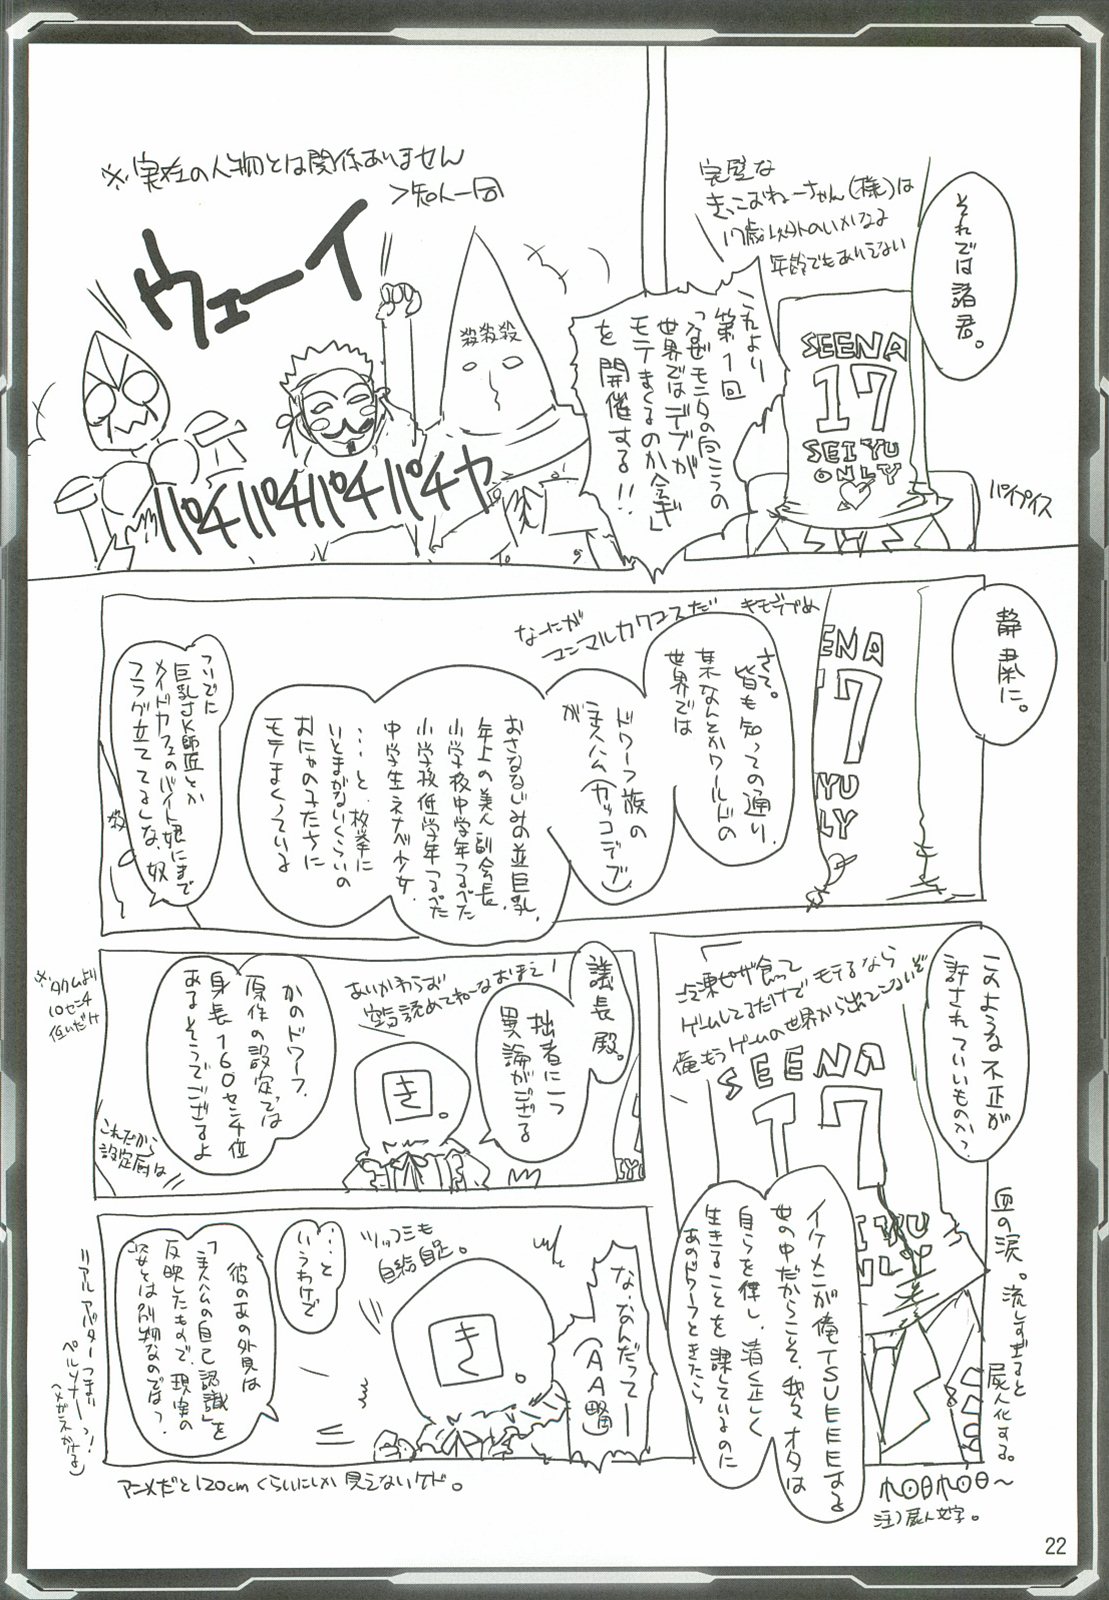 それでは諸君。
完璧な
きっこおねーちゃん(様)は
17歳以外のいかなる
年齢でもありえない
SEENA
17
SEI YU
ONLY
パイプイス
これより
第1回
「なぜモニタの向こうの
世界ではデブが
モテまくるのか会議」
を開催する!!
※実在の人物とは関係ありません
>知人一同
ウェーイ
殺殺殺
パチパチパチパチャ
静粛に。
ENA
17
IYU
LY
キモデブめ
なーにが
マンマルカワユスだ
さて。
皆も知っての通り、
某なんとかワールドの
世界では
ドワーフ族の
主人公(カッコデブ)
が
おさななじみの並巨乳、
年上の美人副会長、
小学校中学年つるぺた
小学校低学年つるぺた
中学生ネナベ少女、
…と、枚挙に
いとまがないくらいの
おにゃのこたちに
モテまくっている
ついでに
巨乳JK師匠とか
メイドカフェのバイト娘にまで
フラグ立ててるしな、奴
殺
このような不正が
許されていいものか?
「冷凍ピザ食って
ゲームしてるだけでモテるなら
俺もうゲームの世界から出てこないぞ
SEENA
17
血の涙。流しすぎると
屍人化する。
イケメンが俺TSUEEEEする
世の中だからこそ、我々オタは
自らを律し、清く正しく
生きることを課しているのに
あのドワーフときたら
注)屍人文字。
議長殿。
拙者に一つ
異論がござる
あいかわらず
空気読めてねーなおぼえ!
き。
かのドワーフ、
原作の設定では
身長160センチ位
あるそうでござるよ
※タクムより
10センチ
低いだけ
これだから
設定厨は
な、なんだってー
(AA略)
ツッコミも
自給自足。
き。
…と
いうわけで
彼のあの外見は
「主人公の自己認識」を
反映したもので、現実の
姿とは別物なのでは?
リアルアバターつまりっ!
ペルソナーっ!
(メガネかける)
アニメだと120cmくらいにしか見えないケド。
22